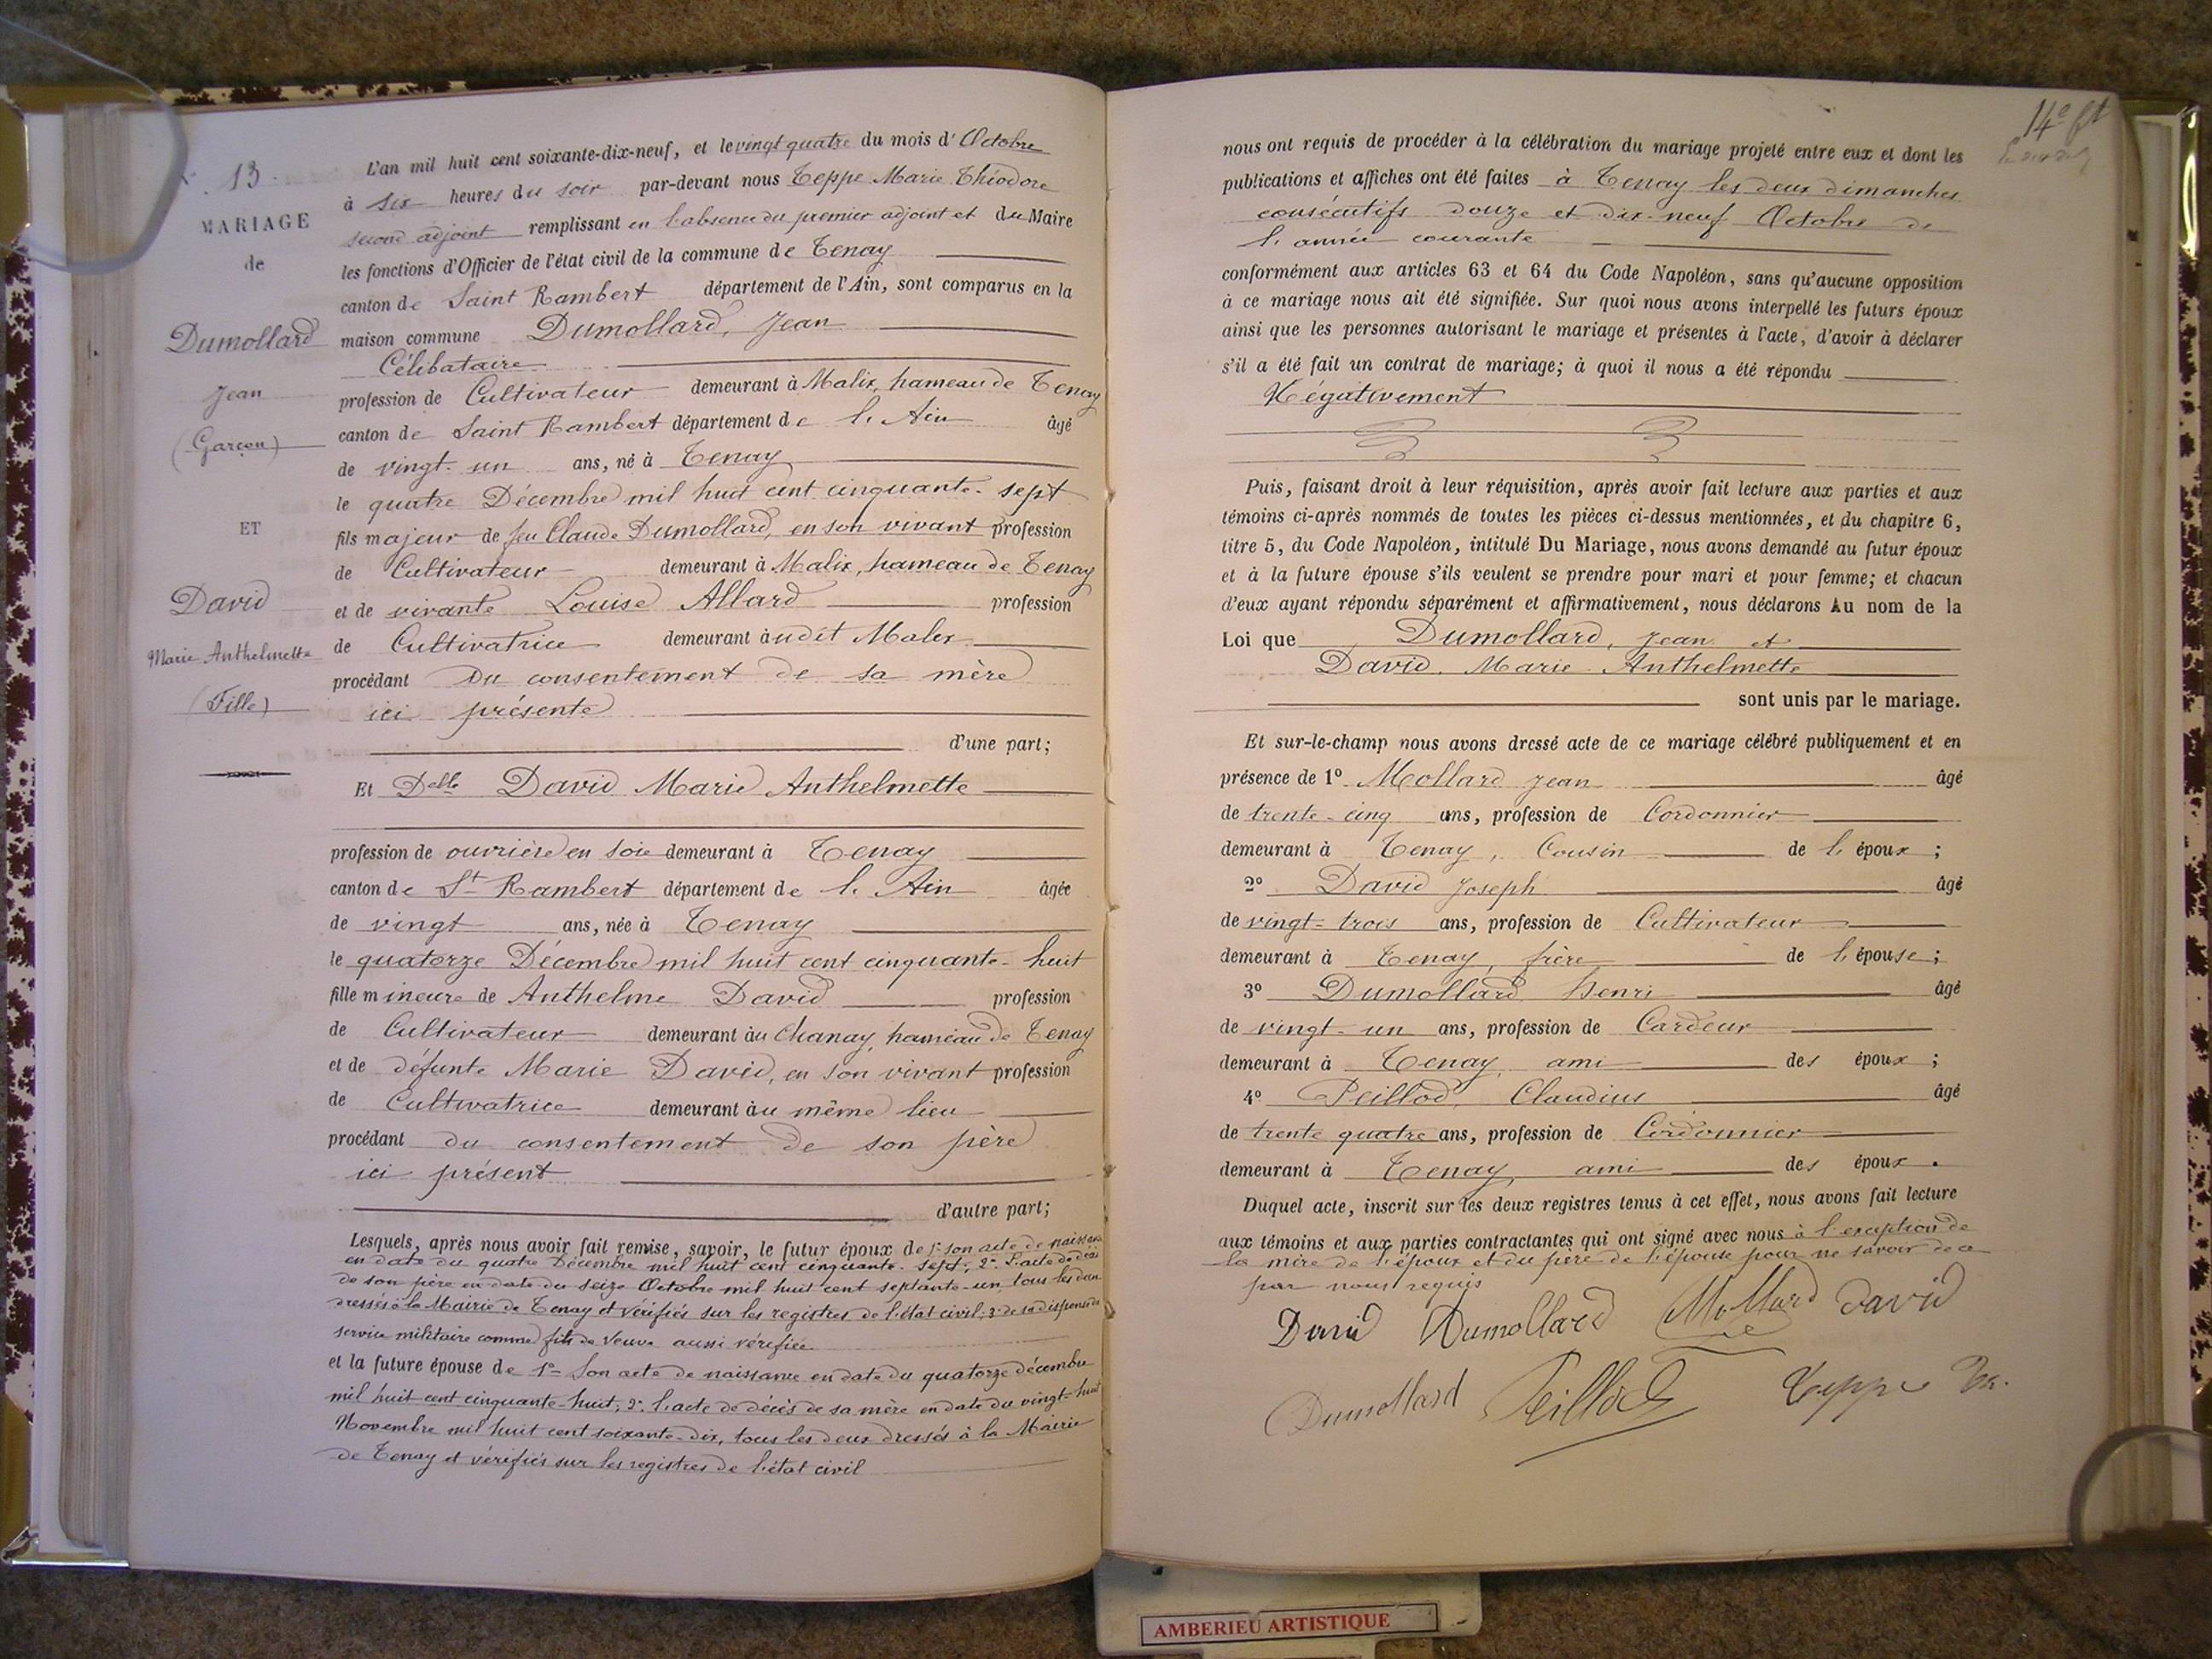 N° 13
MARIAGE
de
Dumollard
Jean
(Garçon)
ET
David
Marie Anthelmette
(Fille)
L'an mil huit cent soixante-dix-neuf, et le vingt quatre du mois d'Octobre
à six heures du soir par-devant nous Teppe Marie Théodore
second adjoint remplissant en l'absence du premier adjoint et du Maire
les fonctions d'Officier de l'état civil de la commune de Tenay
canton de Saint Rambert département de l'Ain, sont comparus en la
maison commune Dumollard, Jean
Célibataire
profession de Cultivateur demeurant à Malix, hameau de Tenay
canton de Saint Rambert département de l'Ain âgé
de vingt-un ans, né à Tenay
le quatre Décembre mil huit cent cinquante-sept
fils majeur de feu Claude Dumollard, en son vivant profession
de Cultivateur demeurant à Malix, hameau de Tenay
et de vivante Louise Allard profession
de Cultivatrice demeurant audit Malix
procédant du consentement de sa mère
ici présente
d'une part;
Et Delle David Marie Anthelmette
profession de ouvrière en soie demeurant à Tenay
canton de St Rambert département de l'Ain âgée
de vingt ans, née à Tenay
le quatorze Décembre mil huit cent cinquante-huit
fille mineure de Anthelme David profession
de Cultivateur demeurant au Chanay, hameau de Tenay
et de défunte Marie David, en son vivant profession
de Cultivatrice demeurant au même lieu
procédant du consentement de son père
ici présent
d'autre part;
Lesquels, après nous avoir fait remise, savoir, le futur époux de 1° son acte de naissance
en date du quatre Décembre mil huit cent cinquante-sept; 2° l'acte de décès
de son père en date du seize Octobre mil huit cent septante-un, tous les deux
dressés à la Mairie de Tenay et vérifiés sur les registres de l'état civil; 3° de sa dispense du
service militaire comme fils de veuve aussi vérifiée
et la future épouse de 1° Son acte de naissance en date du quatorze décembre
mil huit cent cinquante-huit; 2° l'acte de décès de sa mère en date du vingt-huit
Novembre mil huit cent soixante-dix, tous les deux dressés à la Mairie
de Tenay et vérifiés sur les registres de l'état civil
14e ft
nous ont requis de procéder à la célébration du mariage projeté entre eux et dont les
publications et affiches ont été faites à Tenay les deux dimanches
consécutifs douze et dix-neuf Octobre de
l'année courante
conformément aux articles 63 et 64 du Code Napoléon, sans qu'aucune opposition
à ce mariage nous ait été signifiée. Sur quoi nous avons interpellé les futurs époux
ainsi que les personnes autorisant le mariage et présentes à l'acte, d'avoir à déclarer
s'il a été fait un contrat de mariage; à quoi il nous a été répondu
Négativement
Puis, faisant droit à leur réquisition, après avoir fait lecture aux parties et aux
témoins ci-après nommés de toutes les pièces ci-dessus mentionnées, et du chapitre 6,
titre 5, du Code Napoléon, intitulé Du Mariage, nous avons demandé au futur époux
et à la future épouse s'ils veulent se prendre pour mari et pour femme; et chacun
d'eux ayant répondu séparément et affirmativement, nous déclarons Au nom de la
Loi que Dumollard, Jean et
David, Marie Anthelmette
sont unis par le mariage.
Et sur-le-champ nous avons dressé acte de ce mariage célébré publiquement et en
présence de 1° Mollard Jean âgé
de trente-cinq ans, profession de Cordonnier
demeurant à Tenay, Cousin de l'époux ;
2° David Joseph âgé
de vingt-trois ans, profession de Cultivateur
demeurant à Tenay, frère de l'épouse ;
3° Dumollard Henri âgé
de vingt-un ans, profession de Cardeur
demeurant à Tenay ami des époux ;
4° Peillod, Claudius âgé
de trente quatre ans, profession de Cordonnier
demeurant à Tenay, ami des époux.
Duquel acte, inscrit sur les deux registres tenus à cet effet, nous avons fait lecture
aux témoins et aux parties contractantes qui ont signé avec nous à l'exception de
la mère de l'époux et du père de l'épouse pour ne savoir de ce
par nous requis
David Dumollard Mollard David
Dumollard Peillod Teppe
AMBERIEU ARTISTIQUE